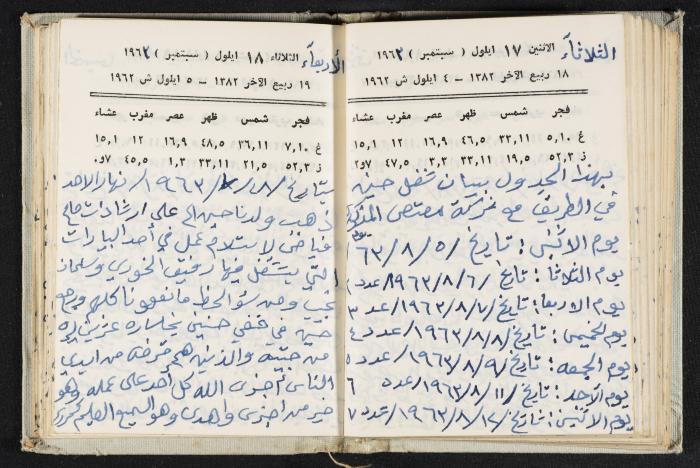 الثلاثآء
الاثنين ١٧ ايلول ( سبتمبر ) ١٩٦٣
١٨ ربيع الآخر ١٣٨٢ – ٤ ايلول ش ١٩٦٢
فجر شمس ظهر عصر مغرب عشاء
غ ٥،١٠ ٣٣،١١ ٤٦،٥ ١٦،٩ ١٢ ١٥،١
ز ٥٢،٣ ١٩،٥ ٣٣،١١ ٣،٣ ٤٧،٥ ٧و٢
بهذا الجدول بيان شغل حين
في الطريق مع شركة معتصم
يوم الاثنين : تاريخ /٦٣/٨/٥
يوم الثلاثا : تاريخ /١٩٦٣/٨/٦ عدد ٢
يوم الاربعا : تاريخ /١٩٦٣/٨/٧ عدد ٣
يوم الخميس : تاريخ /١٩٦٣/٨/٨ عدد ٤
يوم الجمعه : تاريخ /١٩٦٣/٨/٩ عدد ٥
يوم الآحد : تاريخ /١٩٦٣/٨/١١ عدد ٦
يوم الاثنين : تاريخ /١٩٦٣/٨/١٢ عدد ٧
الأربعآء
الثلاثاء ١٨ ايلول ( سبتمبر ) ١٩٦٣
١٩ ربيع الآخر ١٣٨٢ – ٥ ايلول ش ١٩٦٢
فجر شمس ظهر عصر مغرب عشاء
غ ٧،١٠ ٣٦،١١ ٤٨،٥ ١٦،٩ ١٢ ١٥،١
ز ٥٢،٣ ٢١،٥ ٣٣،١١ ١،٣ ٤٥،٥ ٧و٥
بتاريخ /١٨/ /١٩٦٣ نهار الاحد
ذهب ولدنا حين على ارشادات
لاستلام عمل في أحد البيارات
التي يشتغل فيها رفيق الخوري وسلمان
نجيب ومن سؤ الحظ ما نفعونا كلهم ورجع
حين في خساره عزيز
من جيبه والذين هم قرضه من ايدي
الناس جزى الله كل أحد على عمله وهو
خير من اجزى واهدى وهو السميع العليم